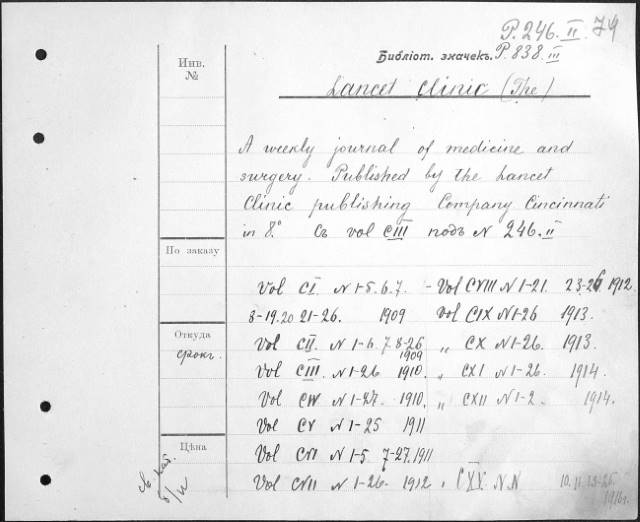 P. 246. II. 74
Библіот. значекъ. P. 838. III
Инв.
№
Lancet clinic (The)
A weekly journal of medicine and
surgery. Published by the Lancet
Clinic publishing Company Cincinnati
in 8.° Съ vol CIII подъ N 246. II
По заказу
Vol CI. N 1-5. 6. 7. - Vol CVIII N 1-21. 23-26 1912
8-19. 20 21-26. 1909 Vol CIX N 1-26 1913.
Откуда
Vol CII. N 1-6. 7. 8-26 1909 „ CX N 1-26. 1913.
Vol CIII. N 1-26 1910. „ CXI N 1-26. 1914.
Vol CIV. N 1-27. 1910. „ CXII N 1-2. 1914.
Vol CV N 1-25 1911
Цѣна
Vol CVI N 1-5 7-27. 1911
Vol CVII N 1-26. 1912 „ CXV. N.N 10. 11. 13-25
1916г.